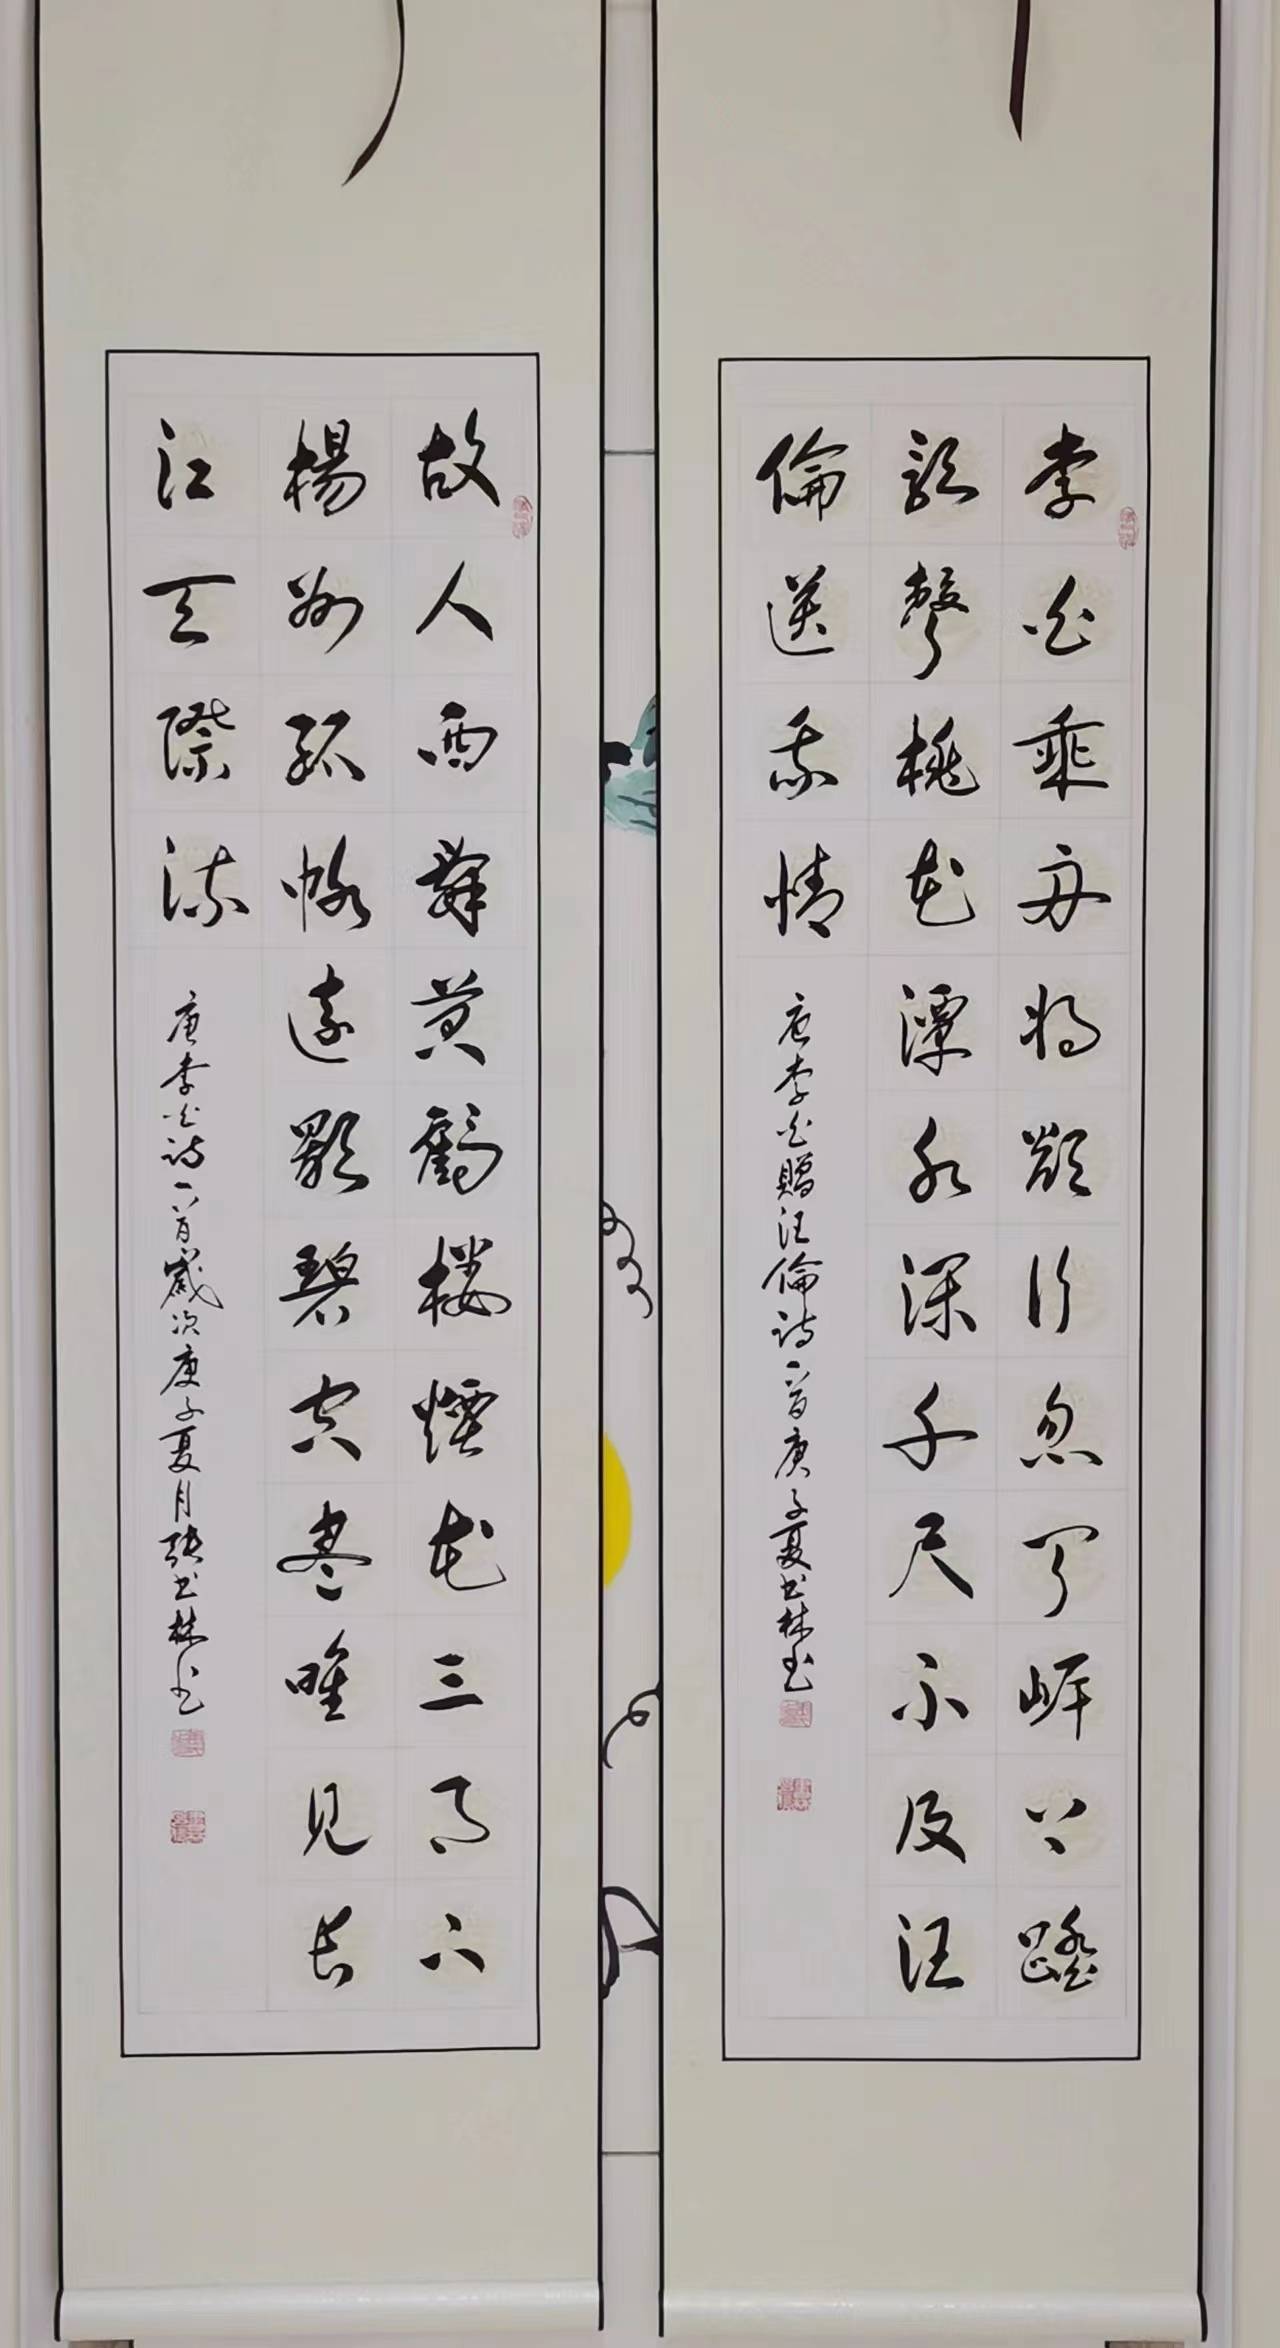 李白乘舟将欲行忽闻岸上踏
歌聲桃花潭水深千尺不及汪
倫送我情
唐李白贈汪倫诗一首庚子夏书林书
故人西辞黄鶴楼煙花三月下
楊州孤帆遠影碧空尽唯見长
江天際流
唐李白诗一首歲次庚子夏月张书林书